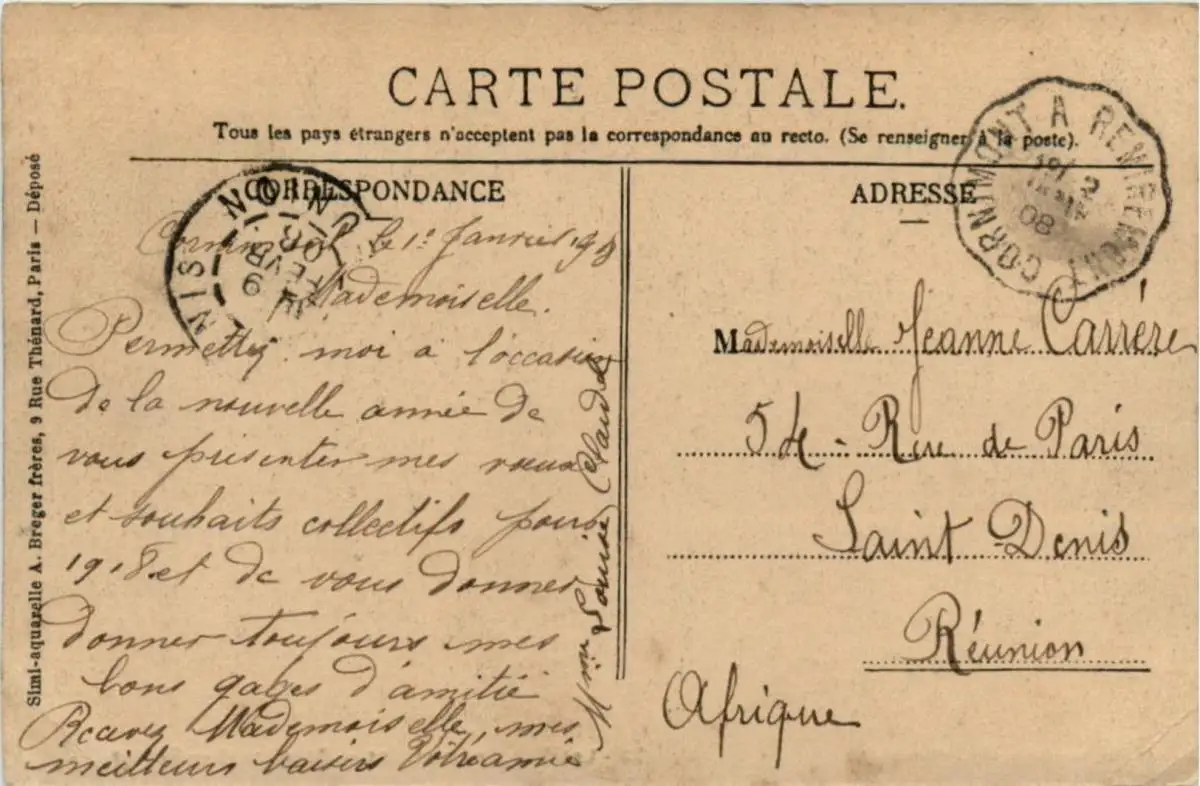 CARTE POSTALE.
Tous les pays étrangers n'acceptent pas la correspondance au recto. (Se renseigner à la poste).
CORRESPONDANCE
Cornimont le 1er Janvier 1908
Mademoiselle.
Permettez moi à l'occasion
de la nouvelle année de
vous présenter mes vœux
et souhaits collectifs pour
1918 et de vous donner
donner toujours mes
bons gages d'amitié
Recevez Mademoiselle, mes
meilleurs baisers Votre amie
Louise Claudel
ADRESSE
Mademoiselle Jeanne Carrère
54 - Rue de Paris
Saint-Denis
Réunion
Afrique
CORNIMONT A REMIREMONT
08
Simi-aquarelle A. Breger frères, 9 Rue Thénard, Paris — Déposé